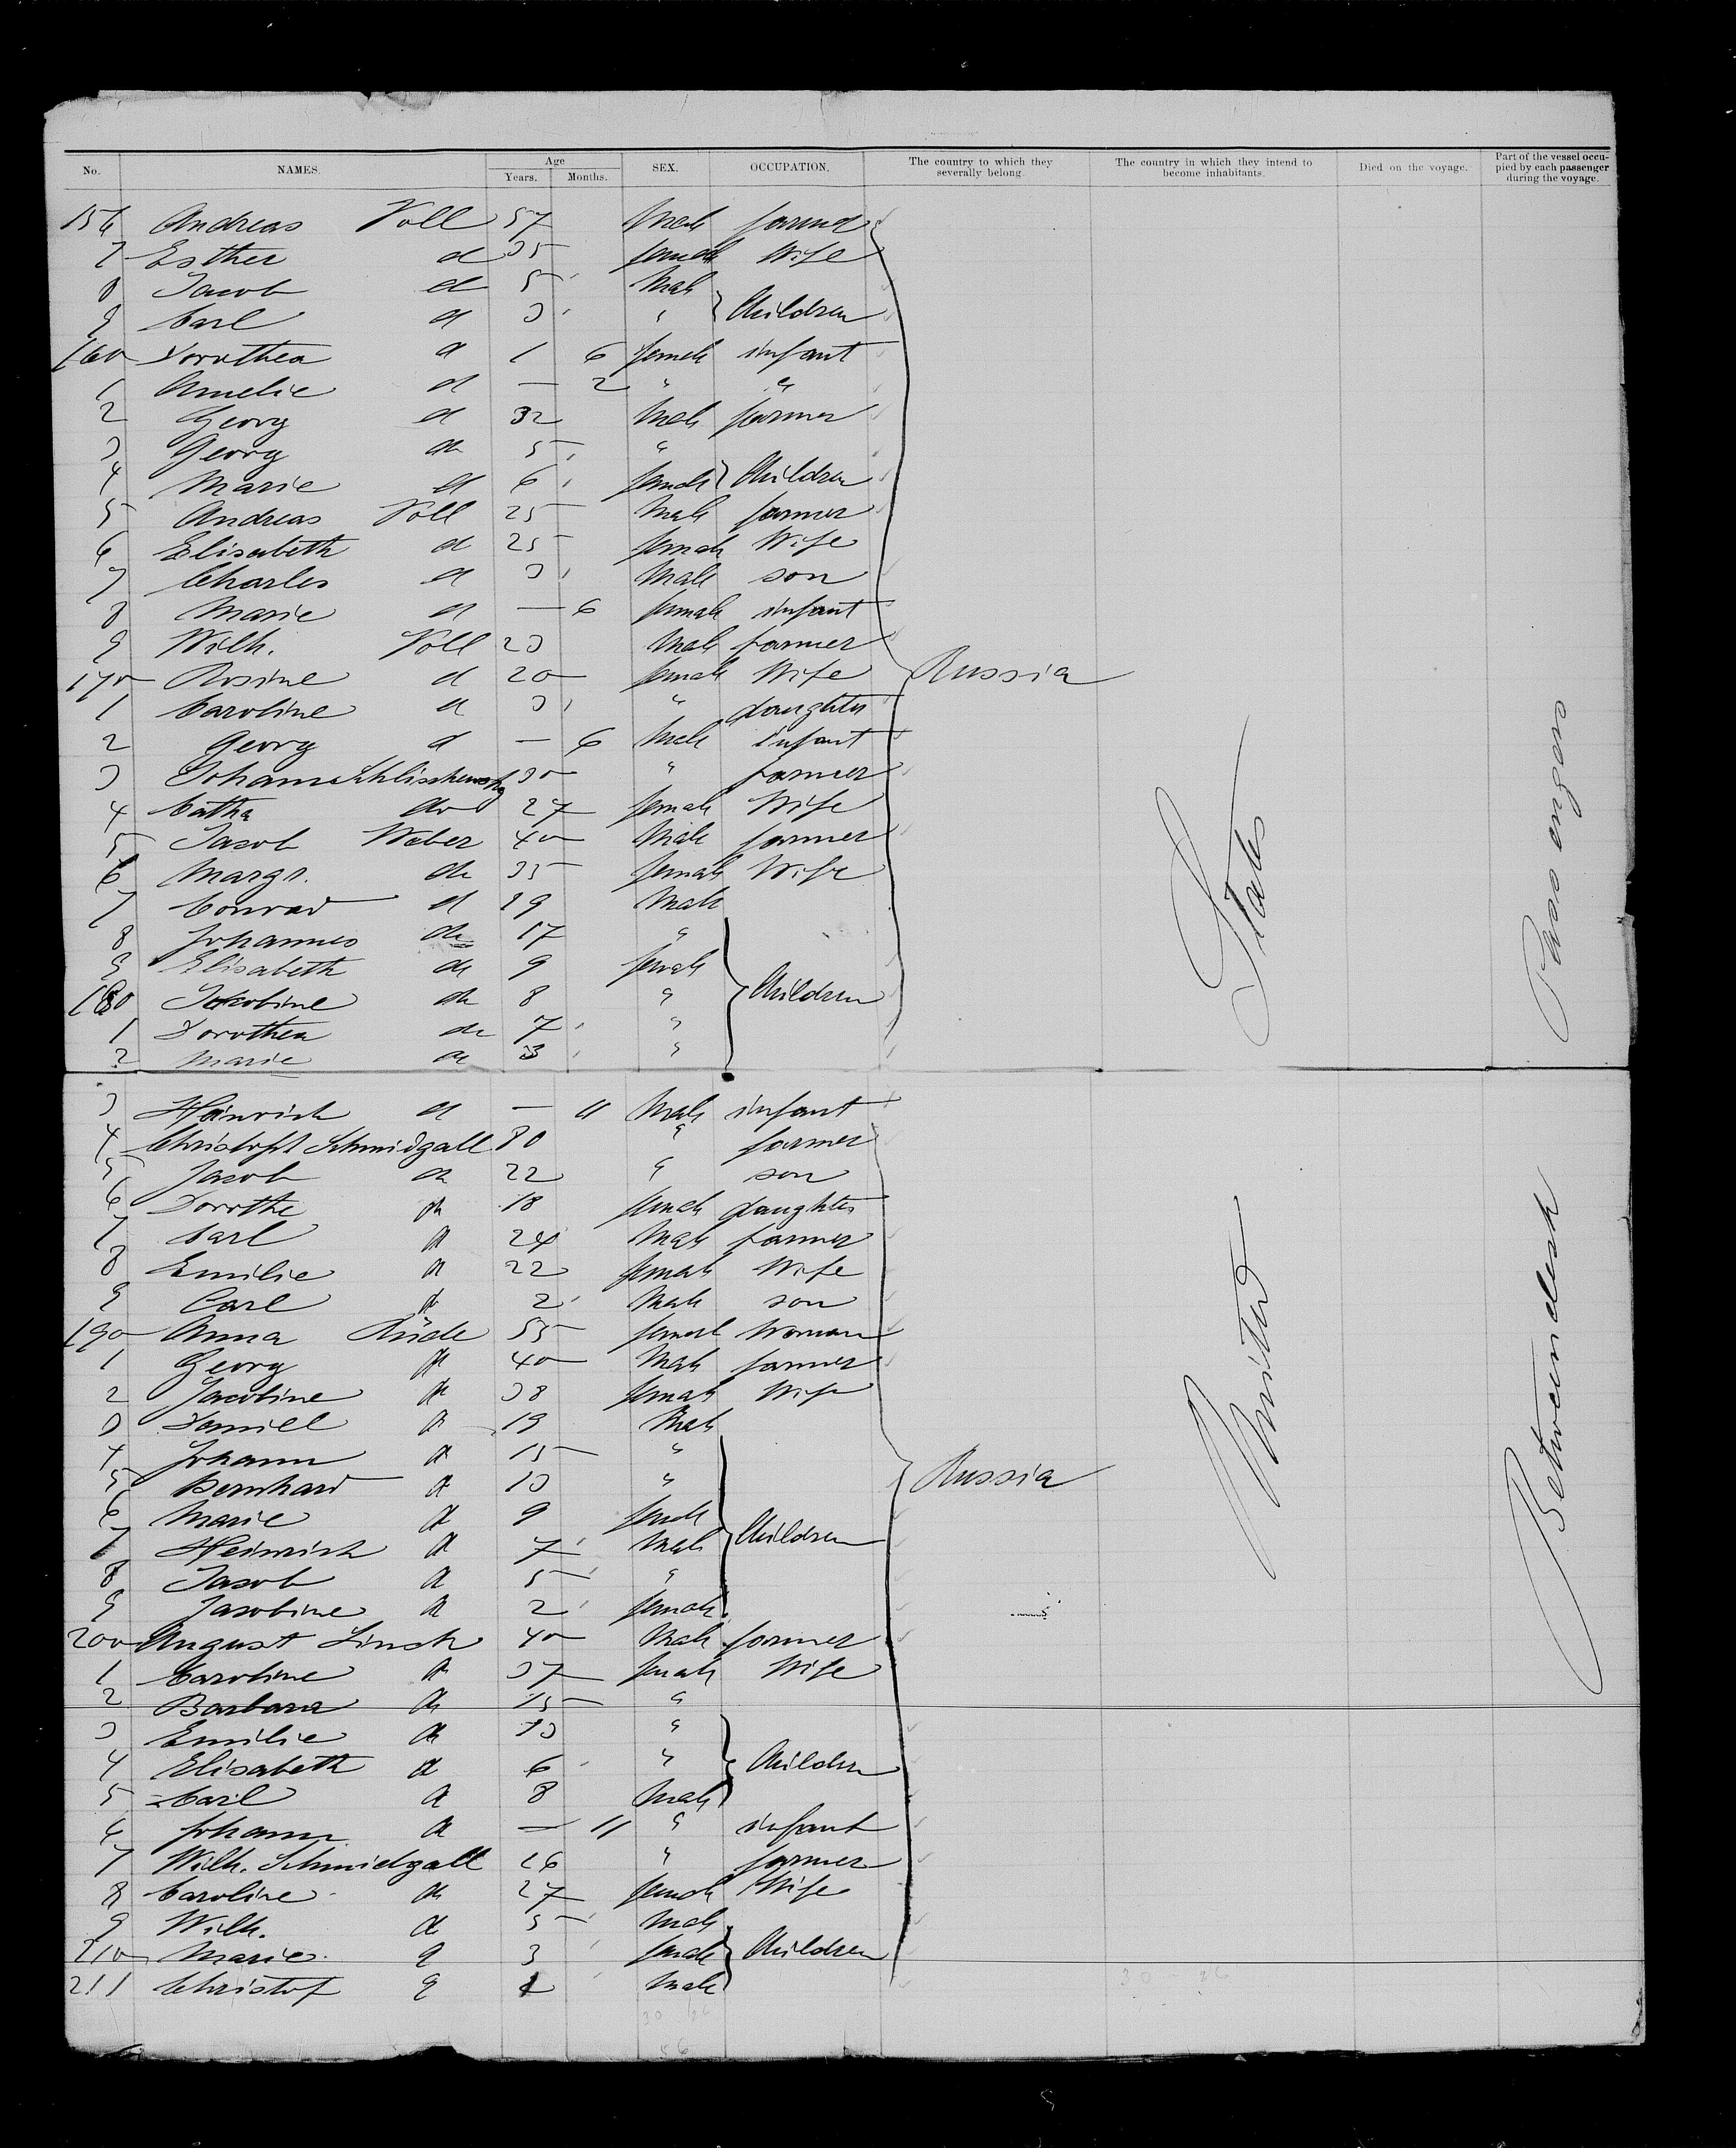 No. NAMES. Age Years. Months. SEX. OCCUPATION. The country to which they severally belong. The country in which they intend to become inhabitants. Died on the voyage. Part of the vessel occupied by each passenger during the voyage.
156 Andreas Voll 57 Male farmer
7 Esther d 35 female Wife
8 Jacob d 5 Male
9 Carl d 3 " Children
160 Dorothea d 1 6 female infant
1 Amelie d — 2 " "
2 Georg d 32 Male farmer
3 Georg do 5 "
4 Marie d 6 female Children
5 Andreas Voll 25 Male farmer
6 Elisabeth d 25 female Wife
7 Charles d 3 Male son
8 Marie d — 6 female infant
9 Wilh. Voll 23 Male farmer
170 Rosine d 20 female Wife Russia
1 Caroline d 3 " daughter
2 Georg d — 6 Male infant
3 Johann 30 " farmer
4 Catha do 27 female Wife
5 Jacob Weber 40 Male farmer
6 Margr. do 35 female Wife
7 Conrad d 19 Male
8 Johannes do 17 "
9 Elisabeth do 9 female
180 Jakobine do 8 " Children
1 Dorothea do 7 "
2 Marie do 3 "
3 Heinrich d — 11 Male infant
4 Christoph Schmidgall 80 " farmer
5 Jacob do 22 " son
6 Dorothe do 18 female daughter
7 Carl do 24 Male farmer
8 Emilie do 22 female Wife
9 Carl do 2 Male son
190 Anna Rüde 55 female Woman
1 Georg do 40 Male farmer
2 Jacobine do 38 female Wife
3 Daniel do 19 Male
4 Johann do 15 "
5 Bernhard do 13 " Russia
6 Marie do 9 female
7 Heinrich do 7 Male Children
8 Jacob do 5 "
9 Jacobine do 2 female
200 August Linsch 40 Male farmer
1 Caroline do 37 female Wife
2 Barbara do 15 "
3 Emilie do 13 "
4 Elisabeth do 6 " Children
5 Carl do 8 Male
6 Johann do — 11 " infant
7 Wilh. Schmidgall 26 " farmer
8 Caroline do 27 female Wife
9 Wilh. do 5 Male
210 Marie " 3 female Children
211 Christof " 1 Male
United States
Betweendesk Passengers